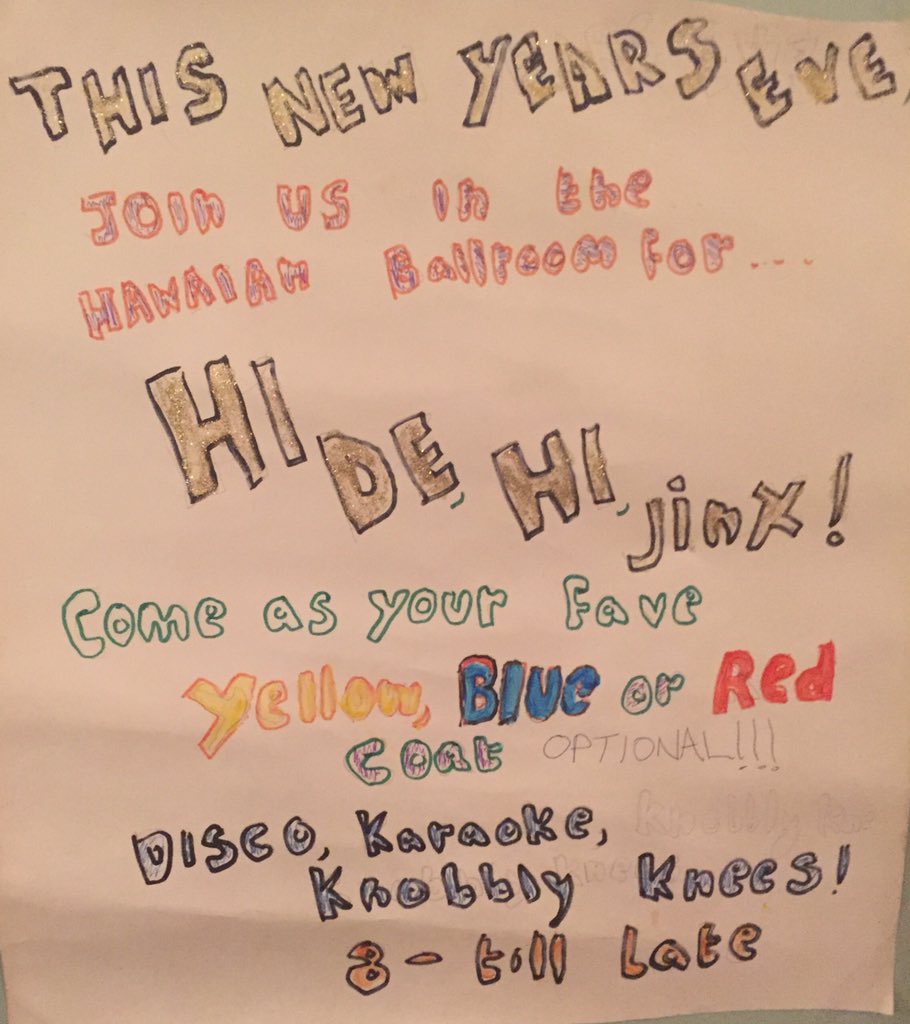 THIS NEW YEARS EVE,
JOIN US IN the
HAWAIAN Ballroom for....
HI DE, HI, jinx!
Come as your fave
Yellow, Blue or Red
coat OPTIONAL!!!
DISCO, Karaoke,
Knobbly Knees!
8 - till late